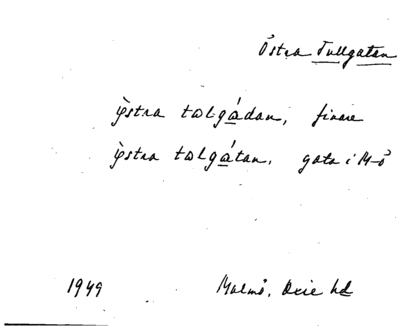 Östra Tullgatan
östra tωlgádan, finare
östra tωlgátan, gata i M-ö
1949 Malmö, Oxie hd